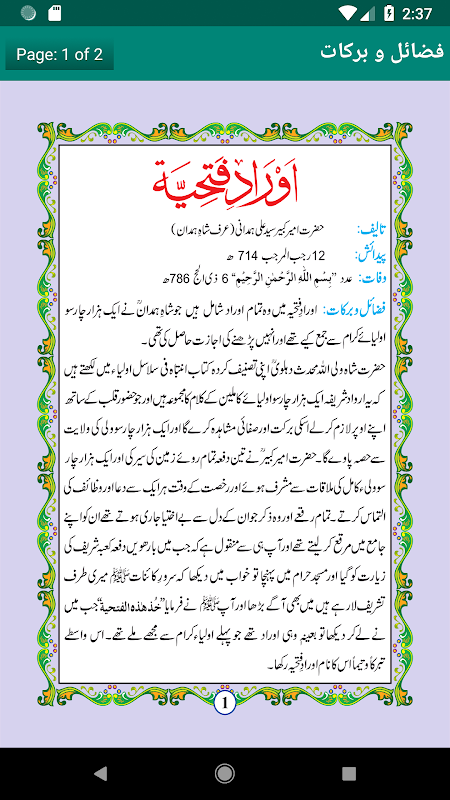 2:37
Page: 1 of 2
فضائل و برکات
اَوْرَادِ فَتْحِيَّة
تالیف: حضرت امیر کبیر سید علی ہمدانی (عرف شاہ ہمدان)
پیدائش: 12 رجب المرجب 714 ھ
وفات: عدد ”بِسْمِ اللهِ الرَّحْمٰنِ الرَّحِيْمِ“ 6 ذی الحج 786ھ
فضائل و برکات: اورادِ فتحیہ میں وہ تمام اوراد شامل ہیں جو شاہِ ہمدانؒ نے ایک ہزار چار سو
اولیائے کرام سے جمع کیے تھے اور انہیں پڑھنے کی اجازت حاصل کی تھی۔
حضرت شاہ ولی اللہ محدث دہلویؒ اپنی تصنیف کردہ کتاب انتباہ فی سلاسل اولیاء میں لکھتے ہیں
کہ یہ اوراد شریفہ ایک ہزار چار سو اولیائے کاملین کے کلام کا مجموعہ ہیں اور جو حضورِ قلب کے ساتھ
اپنے اوپر لازم کرلے اسکی برکت اور صفائی مشاہدہ کرے گا اور ایک ہزار چار سو ولی کی ولایت
سے حصہ پاوے گا۔ حضرت امیر کبیرؒ نے تین دفعہ تمام روئے زمین کی سیر کی اور ایک ہزار چار
سو ولیء کامل کی ملاقات سے مشرف ہوئے اور رخصت کے وقت ہر ایک سے دعا اور وظائف کی
التماس کرتے۔ تمام رقعے اور وہ ذکر جو ان کے دل سے بے اختیار جاری ہوتے تھے ان کو اپنے
جامع میں مرقع کر لیتے تھے اور آپ ہی سے منقول ہے کہ جب میں بارھویں دفعہ کعبہ شریف کی
زیارت کو گیا اور مسجد حرام میں پہنچا تو خواب میں دیکھا کہ سرورِ کائنات ﷺ میری طرف
تشریف لا رہے ہیں میں بھی آگے بڑھا اور آپ ﷺ نے فرمایا ”خُذ هٰذه الفتحية“ جب میں
نے لے کر دیکھا تو بعینہٖ وہی اوراد تھے جو پہلے اولیاء کرام سے مجھے ملے تھے۔ اس واسطے
تبرکاً و تیمناً اس کا نام اورادِ فتحیہ رکھا۔
1